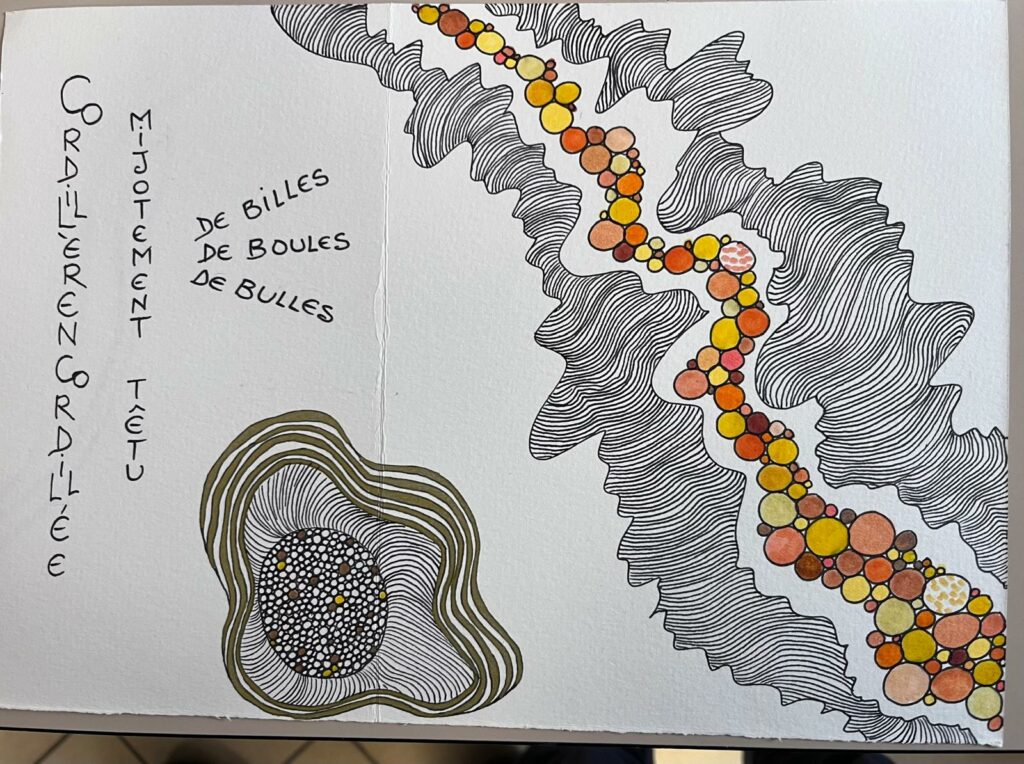 CORDILLÈRENCORDILLÉE
MIJOTEMENT TÊTU
DE BILLES
DE BOULES
DE BULLES